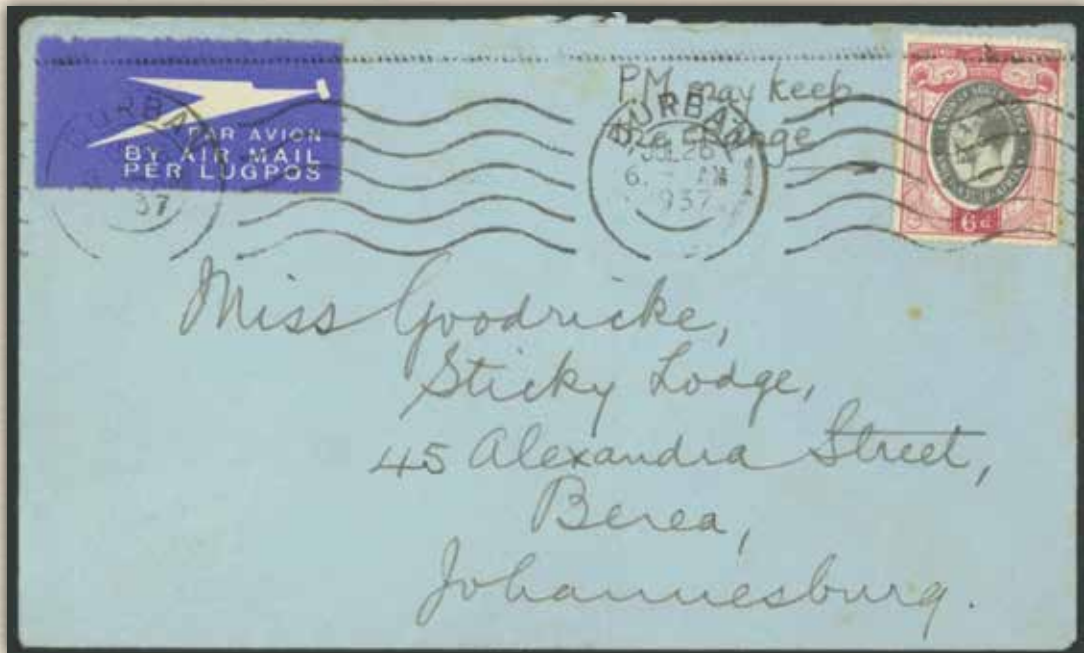 PAR AVION
BY AIR MAIL
PER LUGPOS
DURBAN
37
P.M. may keep
the change
DURBAN
6
AM
1937
6d
Miss Goodricke,
Sticky Lodge,
45 Alexandra Street,
Berea,
Johannesburg.